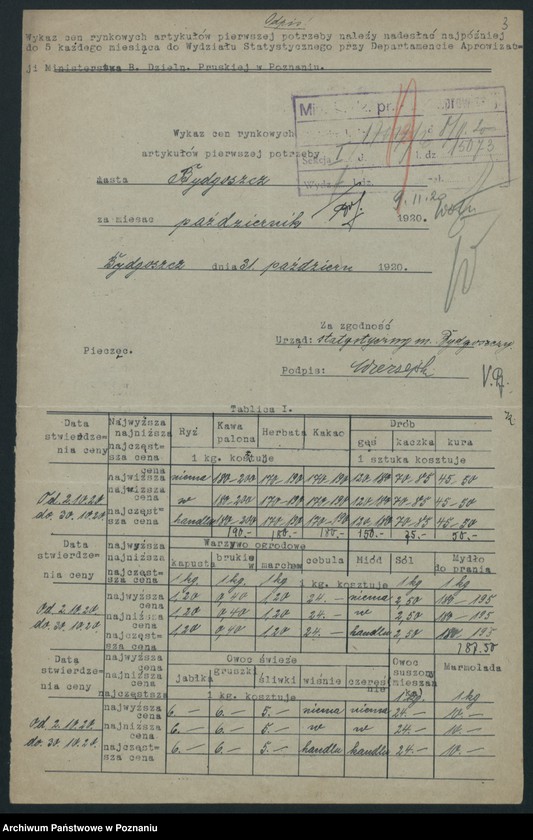 Odpis
3
Wykaz cen rynkowych artykułów pierwszej potrzeby należy nadesłać najpóźniej
do 5 każdego miesiąca do Wydziału Statystycznego przy Departamencie Aprowizac-
ji Ministerstwa B. Dzieln. Pruskiej w Poznaniu.
Wykaz cen rynkowych
artykułów pierwszej potrzeby
miasta Bydgoszcz
9.11.20
za miesąc październik 1920.
Bydgoszcz dnia 31. październ 1920.
Za zgodność
Urząd: m. Bydgoszczy
Pieczęc.
Podpis:
Tablica I.
Data stwierdze- nia ceny Najwyższa najniższa najczęst- sza cena Ryż Kawa palona Herbata Kakao Drób
gęś kaczka kura
1 kg. kosztuje 1 sztuka kosztuje
cena najwiższa niema 180-200 170-190 170-190 120-180 70-85 45-50
Od 2.10.20 najwiższa cena w 180-200 170-190 170-190 120-180 70-85 45-50
do. 30.10.20 najczęst- sza cena handlu 180-200 170-190 170-190 120-180 70-85 45-50
190.- 180.- 180.- 150.- 75.- 50.-
Data stwierdze- nia ceny Najwyższa najniższa najczęst- sza cena Warzywo ogrodowe
kapusta brukiew marchew cebula Miód Sól Mydło do prania
1 kg 1 kg 1 kg 1 kg. kosztuje 1 kg 1 kg
najwyższa cena 1,20 0,40 1,20 24.- niema 2,50 180-195
Od 2.10.20. najniższa cena 1,20 0,40 1,20 24.- w 2,50 180-195
do 30.10.20. najczęst- sza cena 1,20 0,40 1,20 24.- handlu 2,50 180-195
187.50
Data stwierdze- nia ceny najwyższa cena najniższa cena najczęstsza Owoc świeże Owoc suszony mieszan Marmolada
jabłka gruszki śliwki wiśnie czereśnie
1 kg. kosztuje 1 kg
najwyższa cena 6.- 6.- 5.- niema niema 24.- 10.-
Od 2.10.20. najniższa cena 6.- 6.- 5.- w w 24.- 10.-
do. 30.10.20. najczęst- sza cena 6.- 6.- 5.- handlu handlu 24.- 10.-
Archiwum Państwowe w Poznaniu
szukajwarchiwach.gov.pl